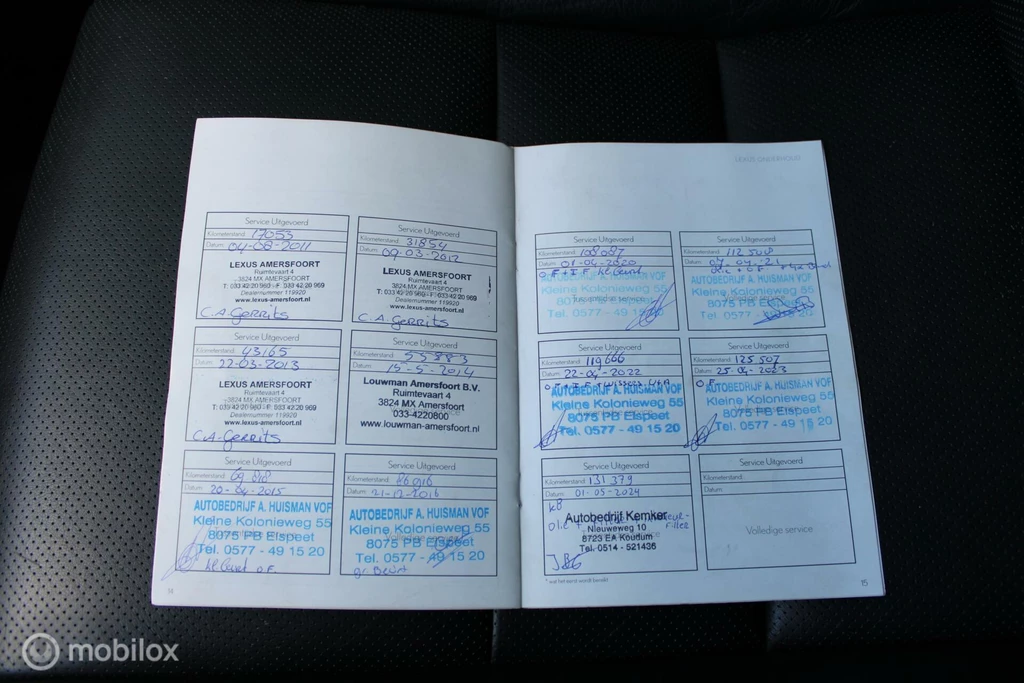 Service Uitgevoerd
Kilometerstand: 17053
Datum: 04-08-2011
LEXUS AMERSFOORT
Ruimtevaart 4
3824 MX AMERSFOORT
T: 033 42 20 969 - F: 033 42 20 969
Dealernummer 119920
www.lexus-amersfoort.nl
C.A. Gerrits
Service Uitgevoerd
Kilometerstand: 31854
Datum: 09-03-2012
LEXUS AMERSFOORT
Ruimtevaart 4
3824 MX AMERSFOORT
T: 033 42 20 969 - F: 033 42 20 969
Dealernummer 119920
www.lexus-amersfoort.nl
C.A. Gerrits
Service Uitgevoerd
Kilometerstand: 43165
Datum: 22-03-2013
LEXUS AMERSFOORT
Ruimtevaart 4
3824 MX AMERSFOORT
T: 033 42 20 969 - F: 033 42 20 969
Dealernummer 119920
www.lexus-amersfoort.nl
C.A. Gerrits
Service Uitgevoerd
Kilometerstand: 55883
Datum: 15-5-2014
Louwman Amersfoort B.V.
Ruimtevaart 4
3824 MX Amersfoort
033-4220800
www.louwman-amersfoort.nl
Service Uitgevoerd
Kilometerstand:
Datum: 20-04-2015
AUTOBEDRIJF A. HUISMAN VOF
Kleine Kolonieweg 55
8075 PB Elspeet
Tel. 0577 - 49 15 20
kl beurt o.F.
Service Uitgevoerd
Kilometerstand: 86016
Datum: 21-12-2016
AUTOBEDRIJF A. HUISMAN VOF
Kleine Kolonieweg 55
8075 PB Elspeet
Tel. 0577 - 49 15 20
gr. Beurt
14
LEXUS ONDERHOUD
Service Uitgevoerd
Kilometerstand: 108687
Datum: 01-04-2020
O.F + I.F kl beurt
AUTOBEDRIJF A. HUISMAN VOF
Kleine Kolonieweg 55
8075 PB Elspeet
Tel. 0577 - 49 15 20
Service Uitgevoerd
Kilometerstand: 112
Datum: 07-04-21
olie + O.F +
AUTOBEDRIJF A. HUISMAN VOF
Kleine Kolonieweg 55
8075 PB Elspeet
Tel. 0577 - 49 15 20
Service Uitgevoerd
Kilometerstand: 119666
Datum: 22-04-2022
O.F + I.F +
AUTOBEDRIJF A. HUISMAN VOF
Kleine Kolonieweg 55
8075 PB Elspeet
Tel. 0577 - 49 15 20
Service Uitgevoerd
Kilometerstand: 125507
Datum: 25-04-2023
O F
AUTOBEDRIJF A. HUISMAN VOF
Kleine Kolonieweg 55
8075 PB Elspeet
Tel. 0577 - 49 15 20
Service Uitgevoerd
Kilometerstand: 131379
Datum: 01-05-2024
KB
olie +
Filter
Autobedrijf Kemker
Nieuweweg 10
8723 EA Koudum
Tel. 0514 - 521436
Service Uitgevoerd
Kilometerstand:
Datum:
Volledige service
* wat het eerst wordt bereikt
15
mobilox